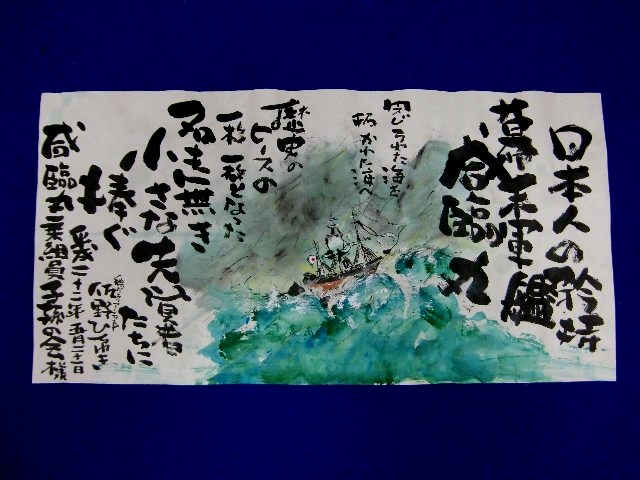 日本人の矜持
幕末軍艦
咸臨丸
閉じられた海を
拓かれた海へ
歴史の
ピースの
一枚一枚となった
名も無き
小さな先賢者
たちに
捧ぐ
佐野ひろゆき
咸臨丸乗組員子孫の会様